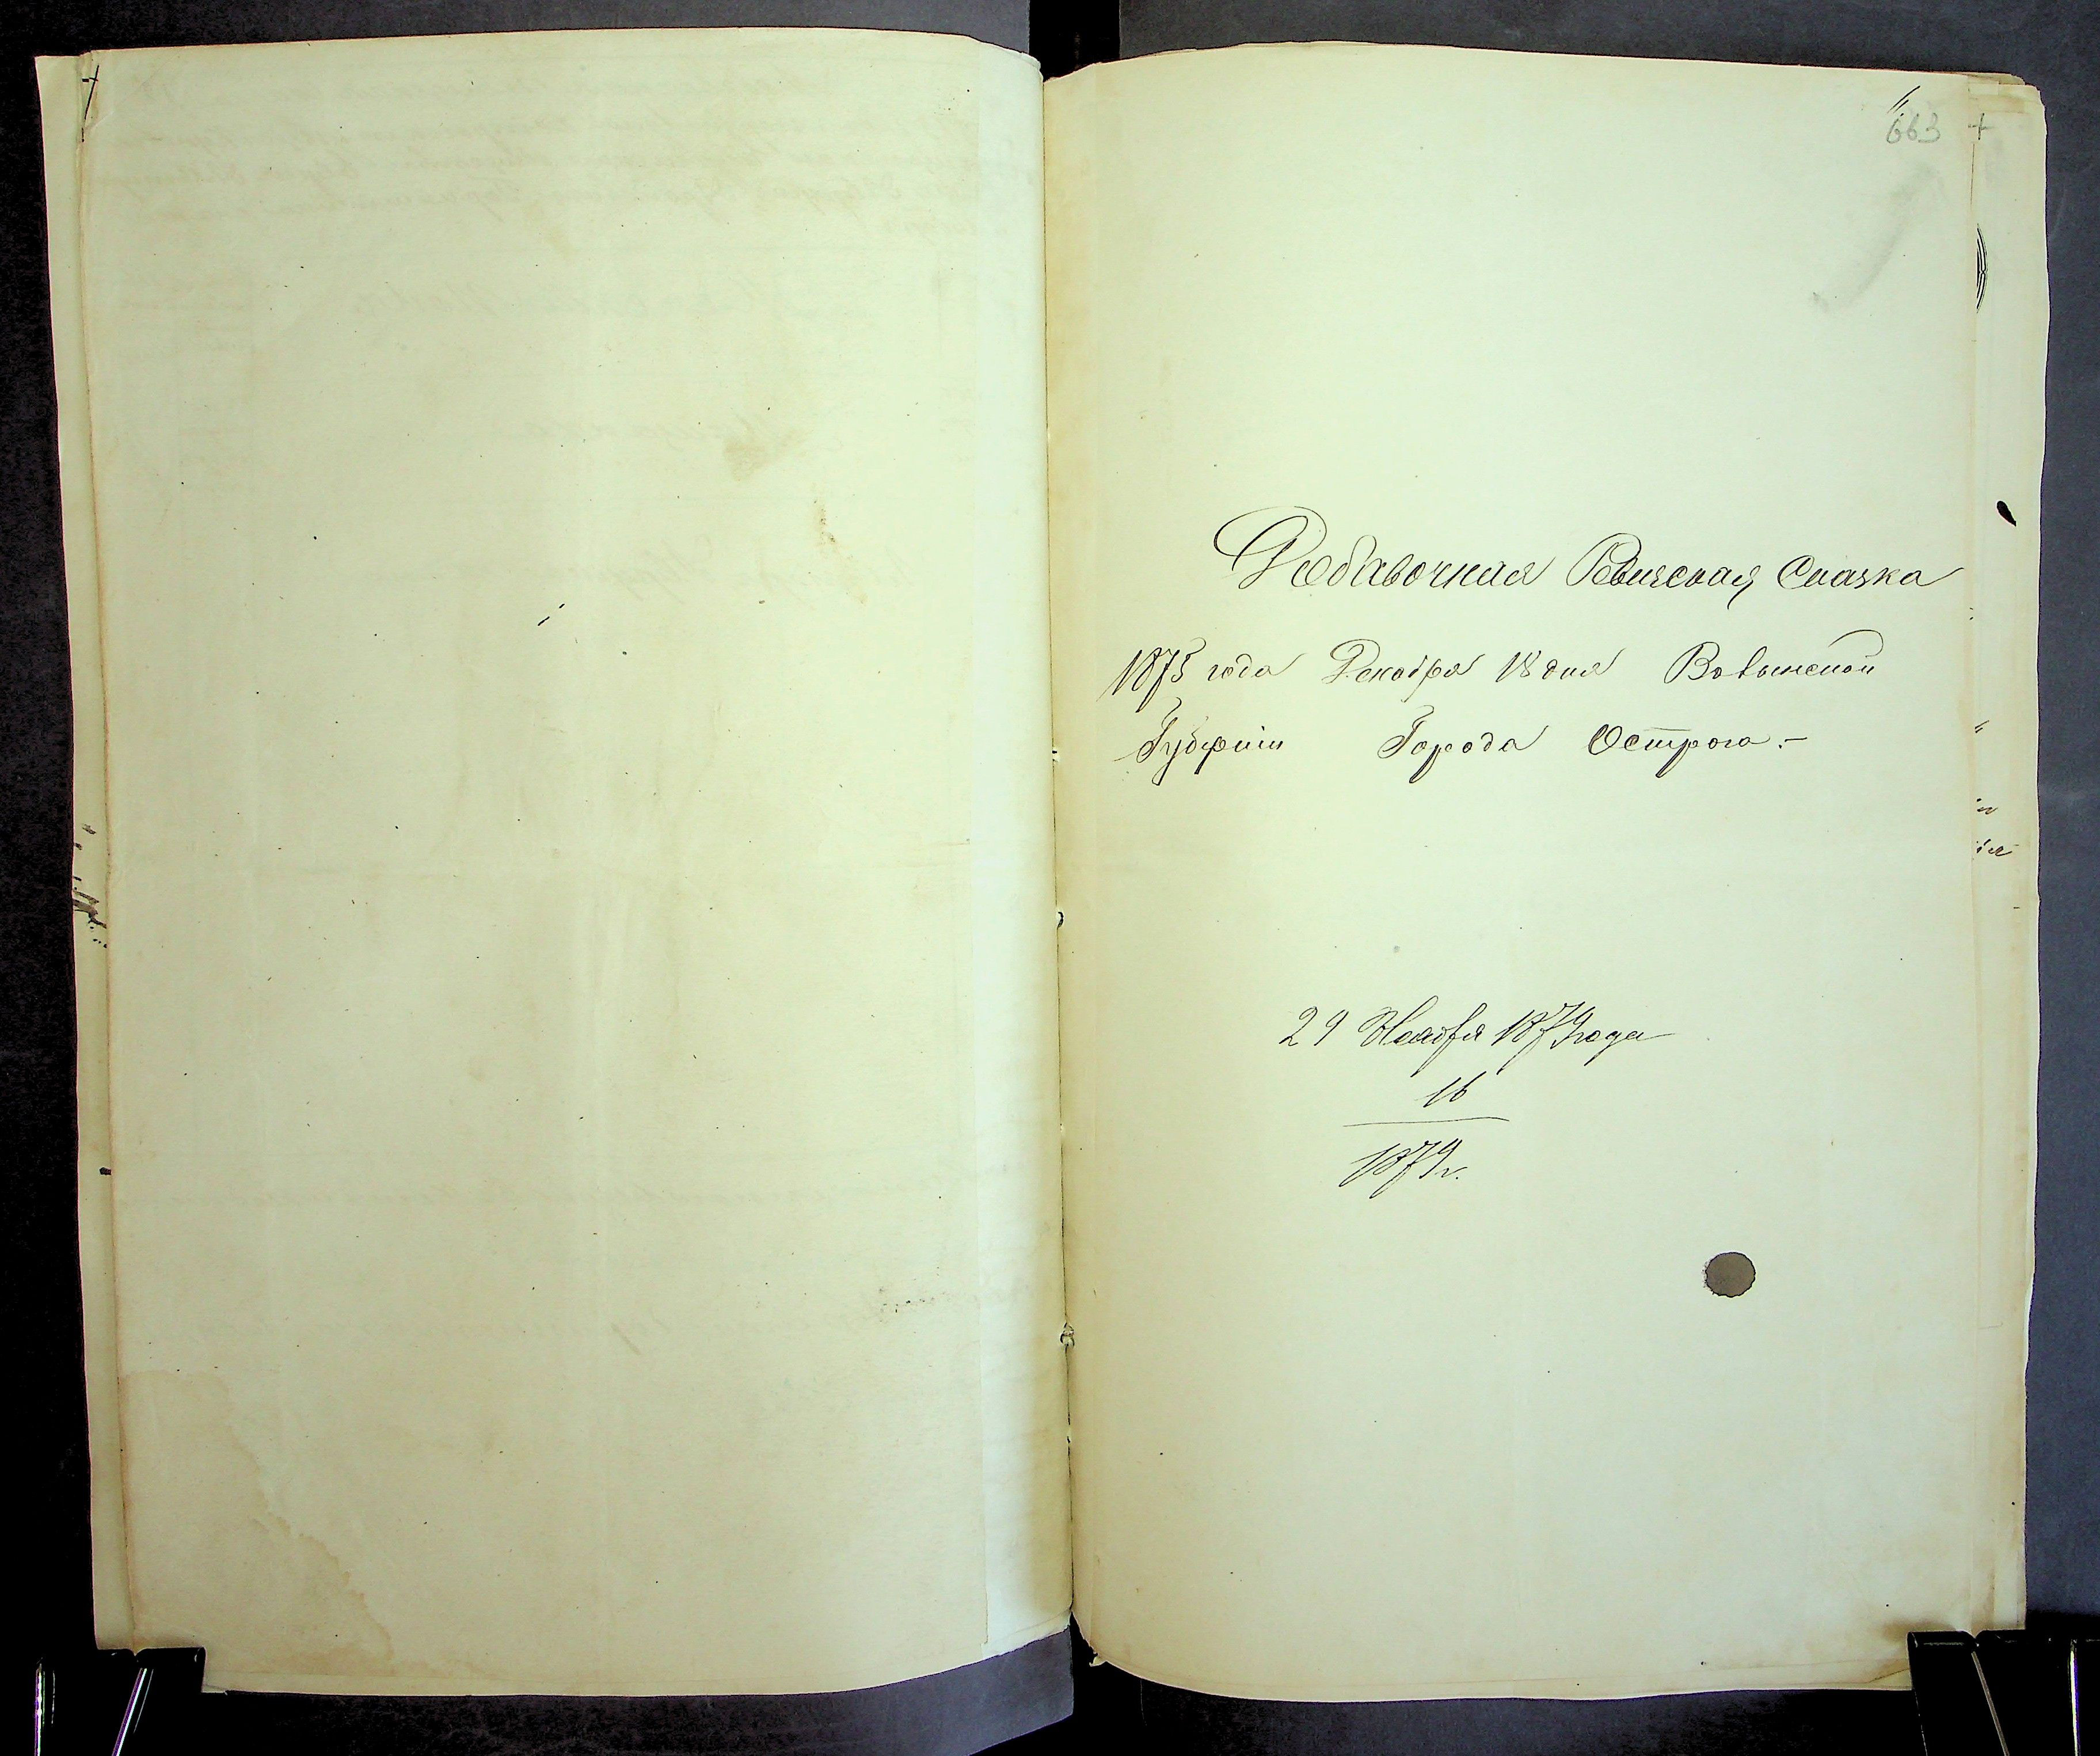 663
Добавочная Ревизская Сказка
1875 года Декабря 18 дня Волынской
Губернии Города Острога.-
29 Ноября 1879 года
16
1879 г.